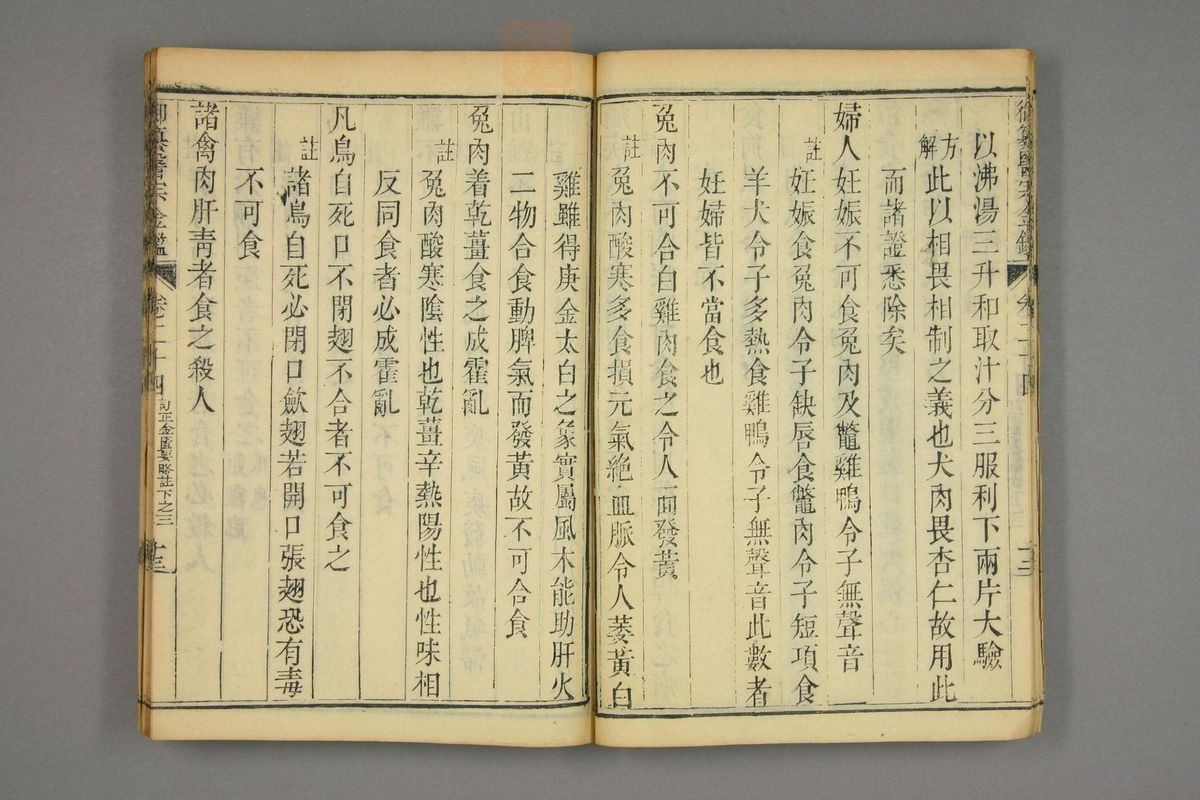 以沸湯三升和取汁分三服利下兩片大驗
方解此以相畏相制之義也犬肉畏杏仁故用此
而諸證悉除矣
婦人妊娠不可食兔肉及鼈雞鴨令子無聲音
註妊娠食兔肉令子缺唇食鼈肉令子短項食
羊犬令子多熱食雞鴨令子無聲音此數者
妊婦皆不當食也
兔肉不可合白雞肉食之令人面發黃
註兔肉酸寒多食損元氣絶血脈令人萎黃白
雞雖得庚金太白之象實屬風木能助肝火
二物合食動脾氣而發黃故不可合食
兔肉着乾薑食之成霍亂
註兔肉酸寒陰性也乾薑辛熱陽性也性味相
反同食者必成霍亂
凡鳥自死口不閉翅不合者不可食之
註諸鳥自死必閉口歛翅若開口張翅恐有毒
不可食
諸禽肉肝靑者食之殺人
御纂醫宗金鑑 卷二十四 訂正金匱要略註下之三 十三